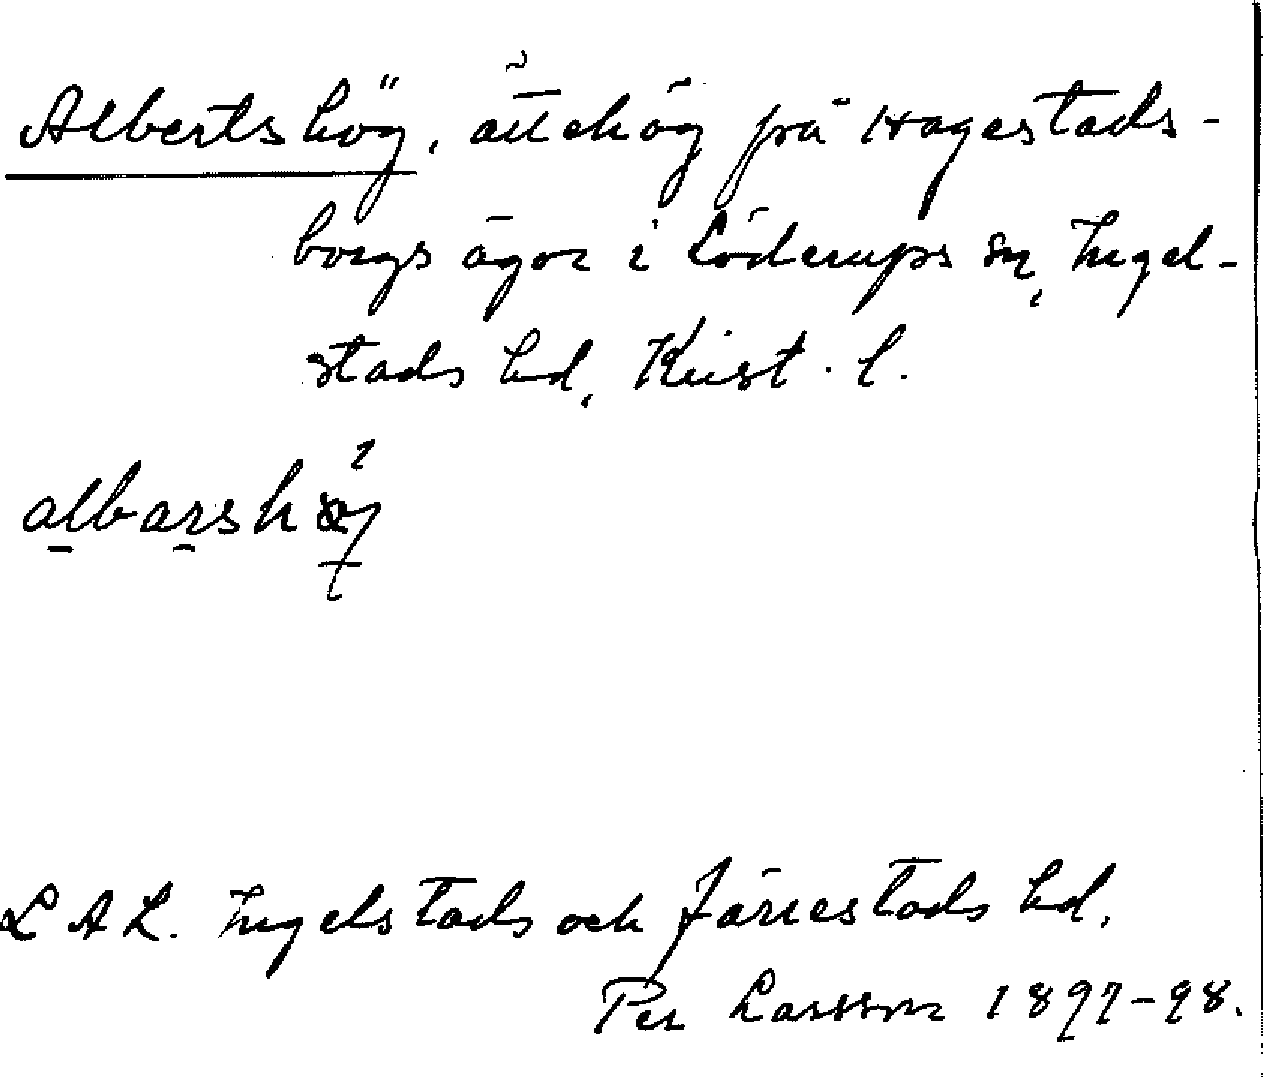 Albertshög, ättehög på Hagestads-
borgs ägor i Löderups sn, Ingel-
stads hd, Krist. l.
albarsh
LAL. Ingelstads och Järrestads hd.
Per Larsson 1897-98.